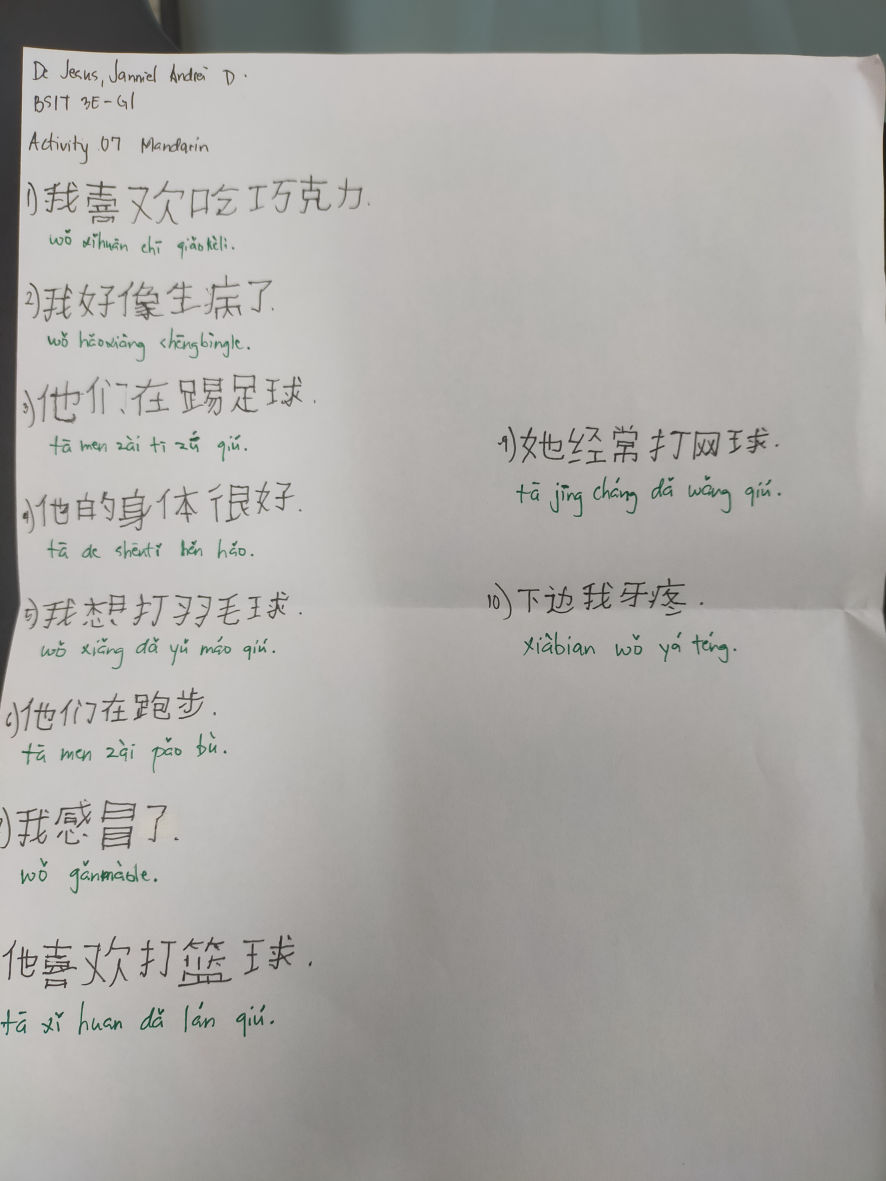 De Jesus, Janniel Andrei D.
BSIT 3E-G1
Activity 07 Mandarin
1) 我喜欢吃巧克力.
wǒ xǐhuān chī qiǎokèlì.
2) 我好像生病了.
wǒ hǎoxiàng shēngbìngle.
3) 他们在踢足球.
tā men zài tī zú qiú.
4) 他的身体很好.
tā de shēntǐ hěn hǎo.
5) 我想打羽毛球.
wǒ xiǎng dǎ yǔ máo qiú.
6) 他们在跑步.
tā men zài pǎo bù.
7) 我感冒了.
wǒ gǎnmàole.
他喜欢打篮球.
tā xǐ huan dǎ lán qiú.
9) 她经常打网球.
tā jīng cháng dǎ wǎng qiú.
10) 下边我牙疼.
xiàbian wǒ yá téng.